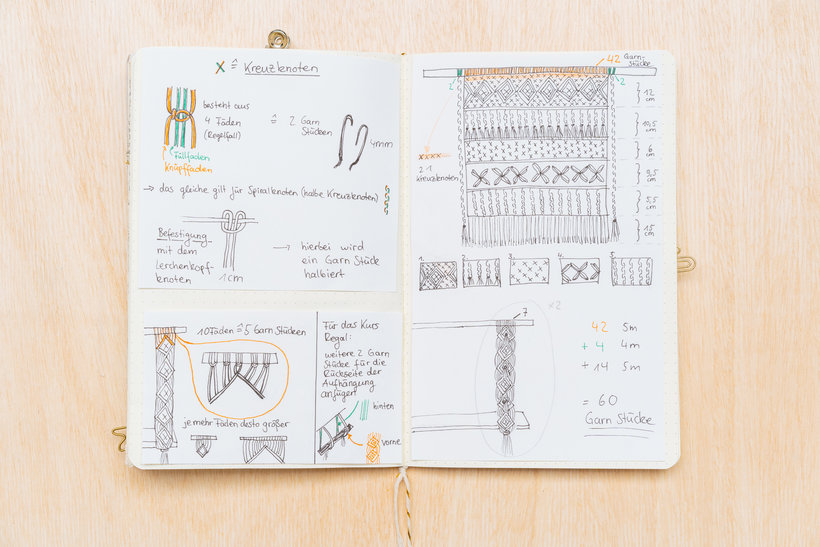 X ≙ Kreuzknoten
besteht aus
4 Fäden
(Regelfall)
≙ 2 Garn
Stücken
4mm
Füllfaden
Knüpffaden
→ das gleiche gilt für Spiralknoten (halbe Kreuzknoten)
Befestigung
mit dem
Lerchenkopf-
knoten
1cm
→ hierbei wird
ein Garn Stück
halbiert
10 Fäden ≙ 5 Garn Stücken
je mehr Fäden desto größer
Für das Kurs
Regal:
weitere 2 Garn
Stücke für die
Rückseite der
Aufhängung
anfügen
hinten
vorne
42 Garn-
Stücke
2
2
12
cm
10,5
cm
6
cm
9,5
cm
5,5
cm
15
cm
xxxx
2-1
Kreuzknoten
1.
2.
3.
4.
5.
x2
7
42 5m
+ 4 4m
+ 14 5m
= 60
Garn Stücke